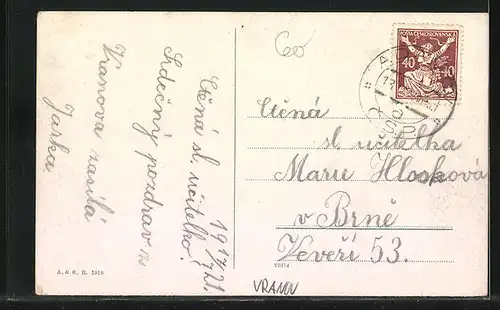 19 17/7 21.
Ctěná sl. učitelko!
Srdečný pozdrav z
Vranova zasílá
Jarka
A. & B. 1919
92874
VRANOV
POŠTA ČESKOSLOVENSKÁ
40 40
Ctěná
sl. učitelka
Marie Hlosková
v Brně
Veveří 53.